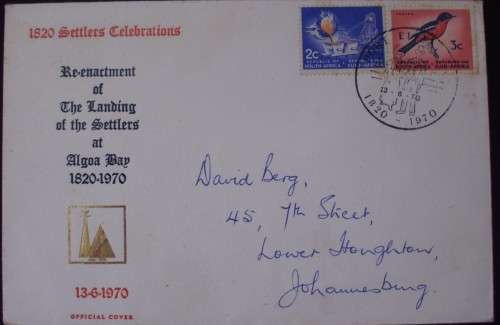 1820 Settlers Celebrations
Re-enactment
of
The Landing
of the Settlers
at
Algoa Bay
1820-1970
13-6-1970
OFFICIAL COVER
2c
REPUBLIC OF
SOUTH AFRICA
REPUBLIEK VAN
SUID-AFRIKA
3c
REPUBLIC OF
SOUTH AFRICA
REPUBLIEK VAN
SUID-AFRIKA
13-6-70
1820-1970
David Berg,
45, 7th Street,
Lower Houghton,
Johannesburg.